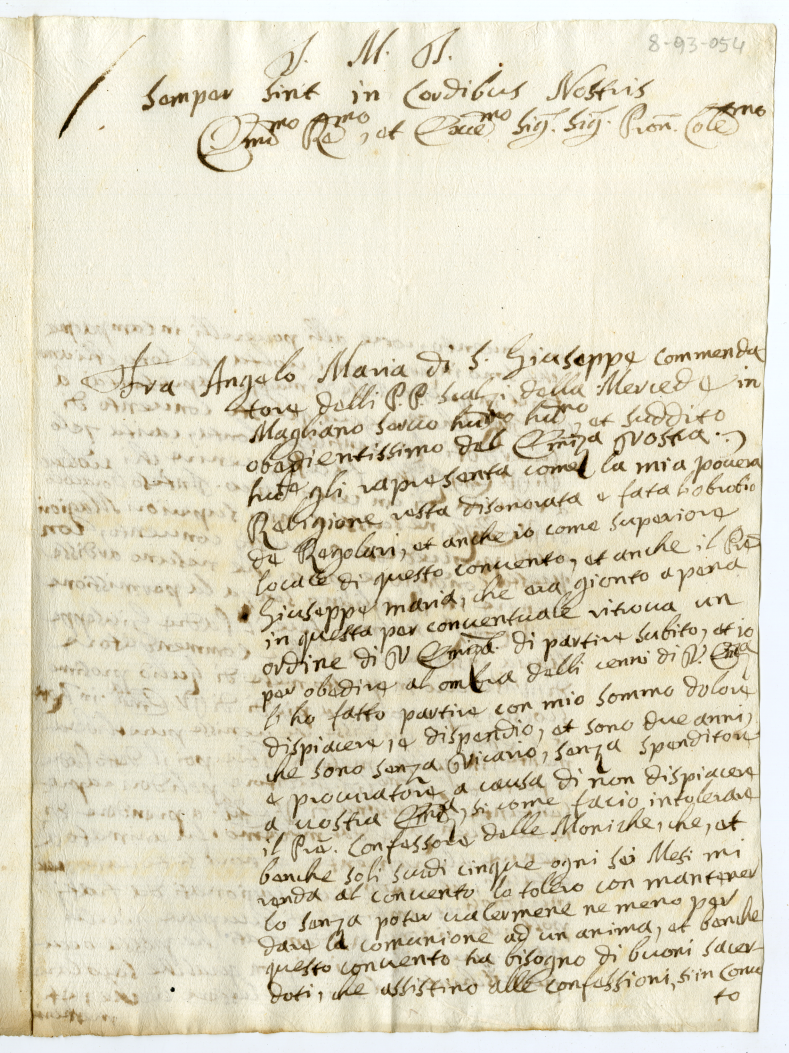 8-93-054
J. M. J.
Semper sint in Cordibus Nostris
Em̃o mo Rẽ mo, et Ecce mo Sig. Sig. Pron. Cole mo
Fra Angelo Maria di S. Giuseppe commenda
tore delli P.P. Scal. della Mercede in
Magliano servo hu hu mo, et suddito
obedientissimo dell Em̃za Vostra
hu te gli rapresenta come la mia povera
Religione resta disonorata e fata l'obrobio
de Regolari, et anche io come superiore
locale di questo convento, et anche il Pre
Giuseppe maria, che era gionto apena
in questa per conventuale ritrova un
ordine di V Em̃za. di partire subito, et io
per obedire al ombra delli cenni di V. Em̃za
li ho fatto partire con mio sommo dolore
dispiacere, e dispendio, et sono due anni,
che sono senza Vicario, senza spenditore
e procuratore a causa di non dispiacere
a vostra Em̃za, si come facio, intolerare
il Pre. Confessore delle Moniche, che, et
benche soli scudi cinque ogni sei Mesi mi
renda al convento lo tolero con mantener
lo senza poter valermene ne meno per
dare la comunione ad un anima, et benche
questo convento ha bisogno di buoni sacer-
doti, che assistino alle confessioni, si in Conve
to